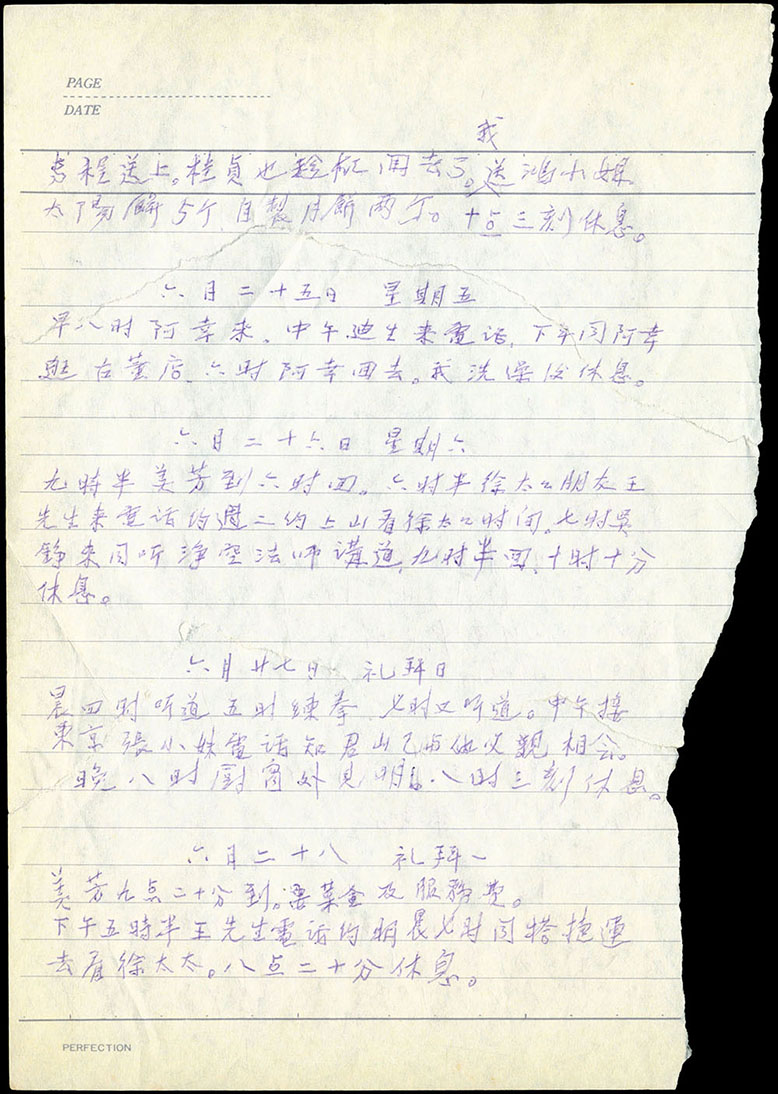 PAGE
DATE
我
送上。桂貞也 回去了。送鴻小姐
太陽餅5个 自製月餅兩个。十点三刻休息。
六月二十五日 星期五
早八时阿幸来。中午迪生来電话,下午同阿幸
逛古董店,六时阿幸回去。我洗澡後休息。
六月二十六日 星期六
九時半美芳到六时回。六时半徐太公朋友王
先生来電话约週二约上山看徐太公时间。七时吳
錚来同听净空法师講道,九时半回,十时十分
休息。
六月廿七日 礼拜日
晨四时听道五时練拳 七时又听道。中午接
東京張小妹電话知君山已与她父親相会。
晚八时厨窗外見明月。八时三刻休息。
六月二十八 礼拜一
美芳九点二十分到。要菜金及服務费。
下午五時半王先生電话约明晨七时同搭捷運
去看徐太太。八点二十分休息。
PERFECTION